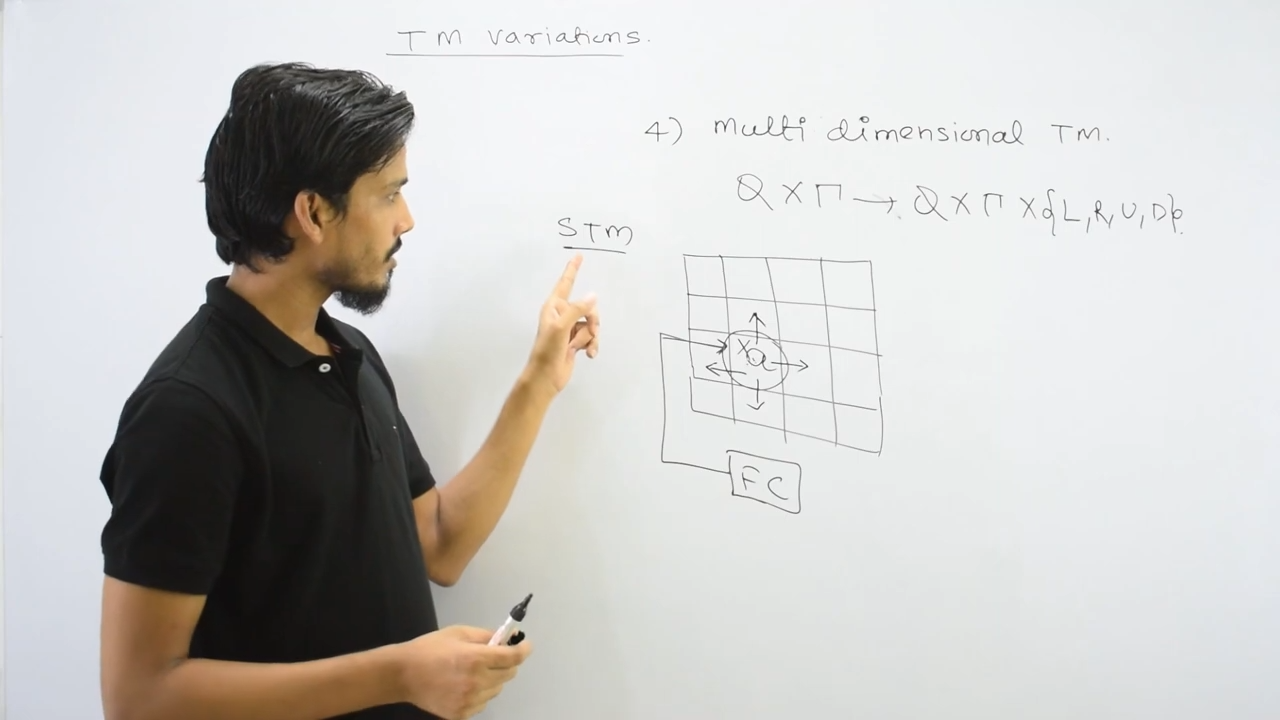 TM variations.
4) multi dimensional TM.
Q X Γ → Q X Γ X {L, R, U, D}.
STM
X a
FC